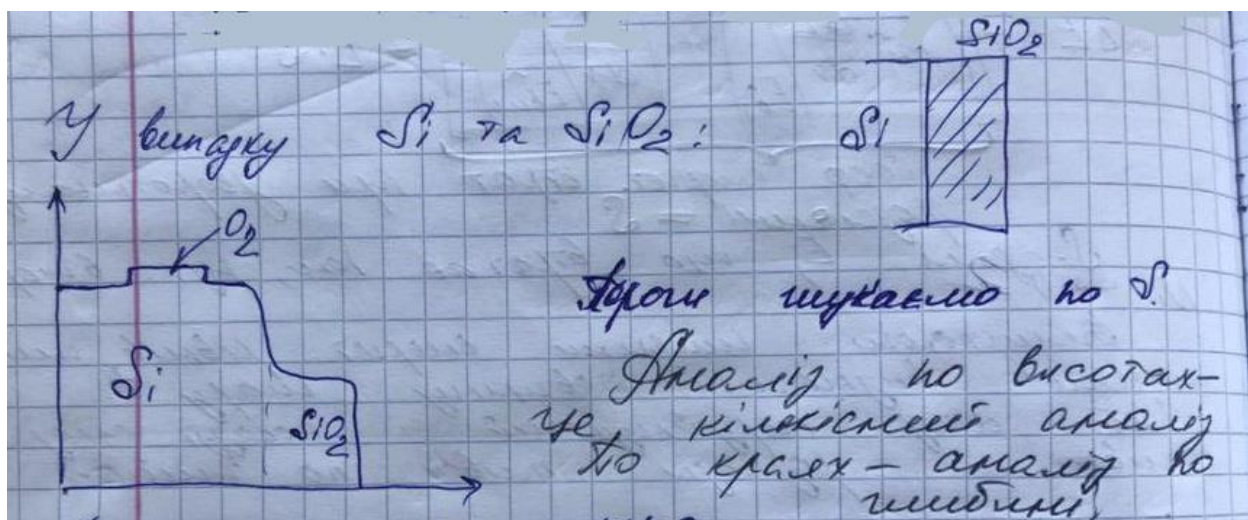 SiO₂
У випадку Si та SiO₂:
Si
O₂
Si
SiO₂
Пороги шукаємо по S.
Аналіз по висотах –
це кількісний аналіз
По краях – аналіз по
глибині.